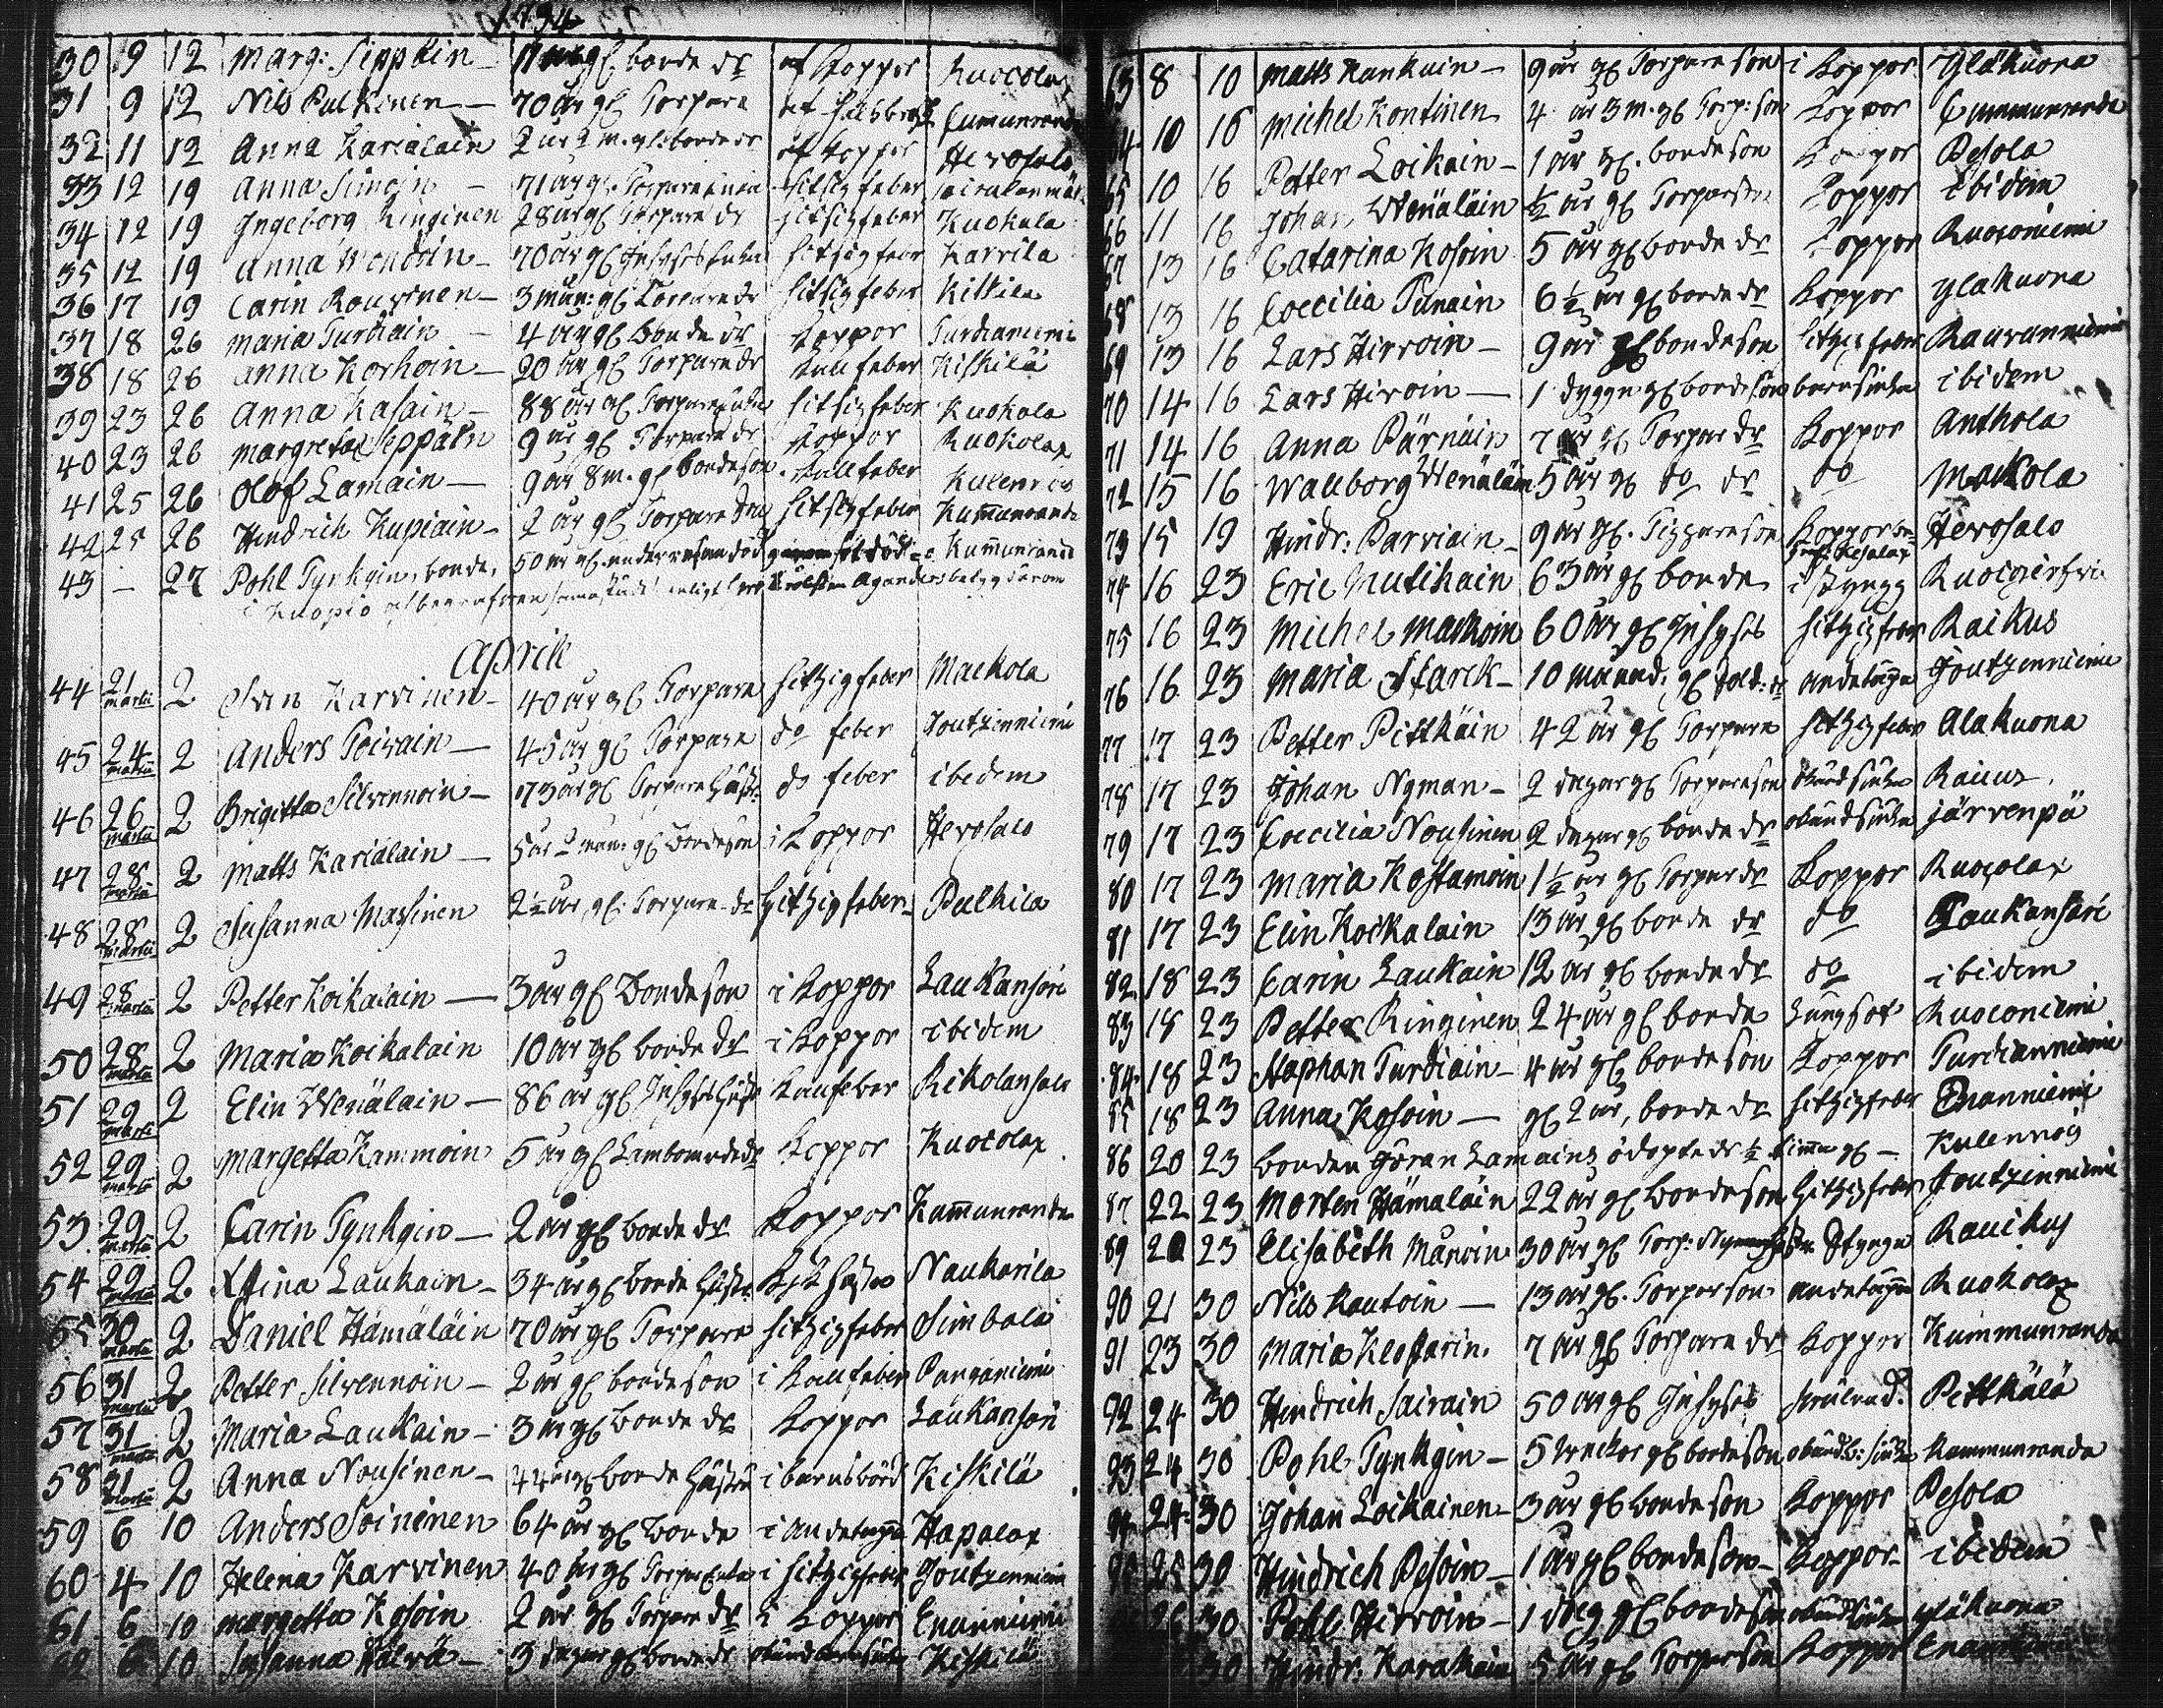 1794
30 9 12 Marg: Seppäin - gl bonde dr af Koppor Kuocolax
31 9 12 Nils Pulkinen - 70 år gl Torpare af
32 11 12 Anna Karialain 2 år 2 m. gl bonde dr af Koppor Herosalo
33 12 19 Anna Simoin - 71 år gl. Torpare Enka hitsig feber
34 12 19 Ingeborg Ringinen 28 år gl Torpare dr hitsig feber Kuokala
35 12 19 Anna Wendoin - 70 år gl Inhyses Enka hitsig feber Karvila
36 17 19 Carin Rouvinen - 3 mån: gl Torpare dr hitsig feber Kiskilä
37 18 26 Maria Turdiain - 4 år gl bonde dr Koppor Turdianiemi
38 18 26 Anna Korhoin - 20 år gl Torpare dr feber Kiskilä
39 23 26 Anna Kasain - 88 år gl Torpare Enka hitsig feber Kuokala
40 23 26 Margreta Seppäin 9 år gl Torpare dr Koppor Kuokolax
41 25 26 Olof Lamain - 9 år 8 m. gl bonde son feber Kulennois
42 25 26 Hindrich Kupiain - 2 år gl Torpare son hitsig feber Kummunranda
43 - 27 Pohl Tynkgin, bonde, 50 år gl. under resan död Kummunranda
i Kuopio och begrafven samastädes enligt
April
44 21 martii 2 Sven Karvinen - 40 år gl Torpare hitzig feber Mackola
45 24 martii 2 Anders Toivain - 45 år gl Torpare do feber Joutzenniemi
46 26 martii 2 Brigitta Silvennoin - 73 år gl Torpare hustr: do feber ibidem
47 28 martii 2 Matts Karialain - 5 år 2 mån: gl Bondeson i Koppor Herosalo
48 28 martii 2 Susanna Massinen 2½ år gl. Torpare dr hitzig feber - Pulkila
49 28 martii 2 Petter Koikalain - 3 år gl Bonde son i Koppor Laukansari
50 28 martii 2 Maria Koikalain 10 år gl bonde dr i Koppor ibidem
51 29 martii 2 Elin Wenäläin - 86 år gl Inhyses hust feber Rikolansalo
52 29 martii 2 Margetta Kammoin 5 år gl dr Koppor Kuocolax
53 29 martii 2 Carin Tynkgin - 2 år gl bonde dr Koppor Kummunranda
54 29 martii 2 Stina Laukain - 34 år gl bonde hustr: Naukarila
55 30 martii 2 Daniel Hämäläin 70 år gl Torpare hitzig feber Simbala
56 31 martii 2 Petter Silvennoin - 2 år gl bonde son i feber Panganiemi
57 31 martii 2 Maria Laukain - 3 år gl bonde dr Koppor Laukansari
58 31 martii 2 Anna Nousinen - 44 år gl bonde hustru i barnsbörd Kiskilä
59 6 10 Anders Soininen 64 år gl bonde i andetäppa Hapalax
60 4 10 Helena Karvinen 40 år gl Torpar Enka i hitzigfeber Joutzenniemi
61 6 10 Margetta Kosoin 2 år gl Torpare dr i Koppor Enanniemi
62 6 10 Susanna Halvä - 3 dagar gl bonde dr Kiskilä
63 8 10 Matts Kankain - 9 år gl Torpare son i Koppor Yläkuona
64 10 16 Michel Kontinen 4 år 3 m. gl Torp: son Koppor Cummunranda
65 10 16 Petter Loikain - 1 år gl. bonde son Koppor Pesola
66 11 16 Johan Wenäläin ½ år gl Torparson Koppor ibidem
67 13 16 Catarina Kosoin 5 år gl bonde dr Koppor Ruoconiemi
68 13 16 Coecilia Punain 6½ år gl bonde dr Koppor Yläkuona
69 13 16 Lars Hirvoin - 9 år gl bonde son hitzig feber Rauvanniemi
70 14 16 Lars Hirvoin - 1 dygn gl bonde son barnsiuka ibidem
71 14 16 Anna Pärnäin 7 år gl Torpar dr Koppor Anthola
72 15 16 Wallborg Wenäläin 5 år gl do dr do Mackola
73 15 19 Hindr: Parviain - 9 år gl. son Koppor Herosalo
74 16 23 Eric Mutikain 63 år gl bonde i styngg
75 16 23 Michel Markoin 60 år gl Inhyses hitzigfeber Raikus
76 16 23 Maria Starck - 10 månad: gl Sold: dr andetäppa Joutzenniemi
77 17 23 Petter Pitkäin 42 år gl Torpare hitzig feber Alakuona
78 17 23 Johan Nyman - 2 dagar gl Torpareson obäkand siuka
79 17 23 Coecilia Nousinen 2 dagar gl bonde dr obekand siuka Järvenpä
80 17 23 Maria Kostamoin 1½ år gl Torpar dr Koppor Kuocolax
81 17 23 Elin Koikalain 13 år gl bonde dr do Laukansari
82 18 23 Carin Laukain 12 år gl bonde dr do ibidem
83 18 23 Petter Ringinen 24 år gl bonde Lungsot Ruoconiemi
84 18 23 Staphan Turdiain - 4 år gl bonde son Koppor Turdianniemi
85 18 23 Anna Kosoin - gl 2 år, bonde dr hitzigfeber Enanniemi
86 20 23 bonden Göran Lamains ödöpte dr ½ timme gl - Kulennois
87 22 23 Morten Hämäläin 22 år gl bonde son hitzigfeber Joutzenniemi
89 20 23 Elisabeth Manoin 30 år gl Torp: Styngn Rauikus
90 21 30 Nils Rautoin - 13 år gl. Torparson andetäppa Kuokolax
91 23 30 Maria Kleffarin. 7 år gl Torpare dr Koppor Kummunranda
92 24 30 Hindrich Sairain 50 år gl Inhyses Pitkälä
93 24 30 Pohl Tynkgin - 5 veckor gl bonde son Kammunranda
94 24 30 Johan Loikainen - 3 år gl bonde son Koppor Pesola
95 25 30 Hindrich Pesoin - 1 år gl bonde son - Koppor ibidem
30 Pohl Hirvoin - 1 dag gl bonde son Yläkuona
30 Hindr: Karakain 5 år gl Torparson Koppor